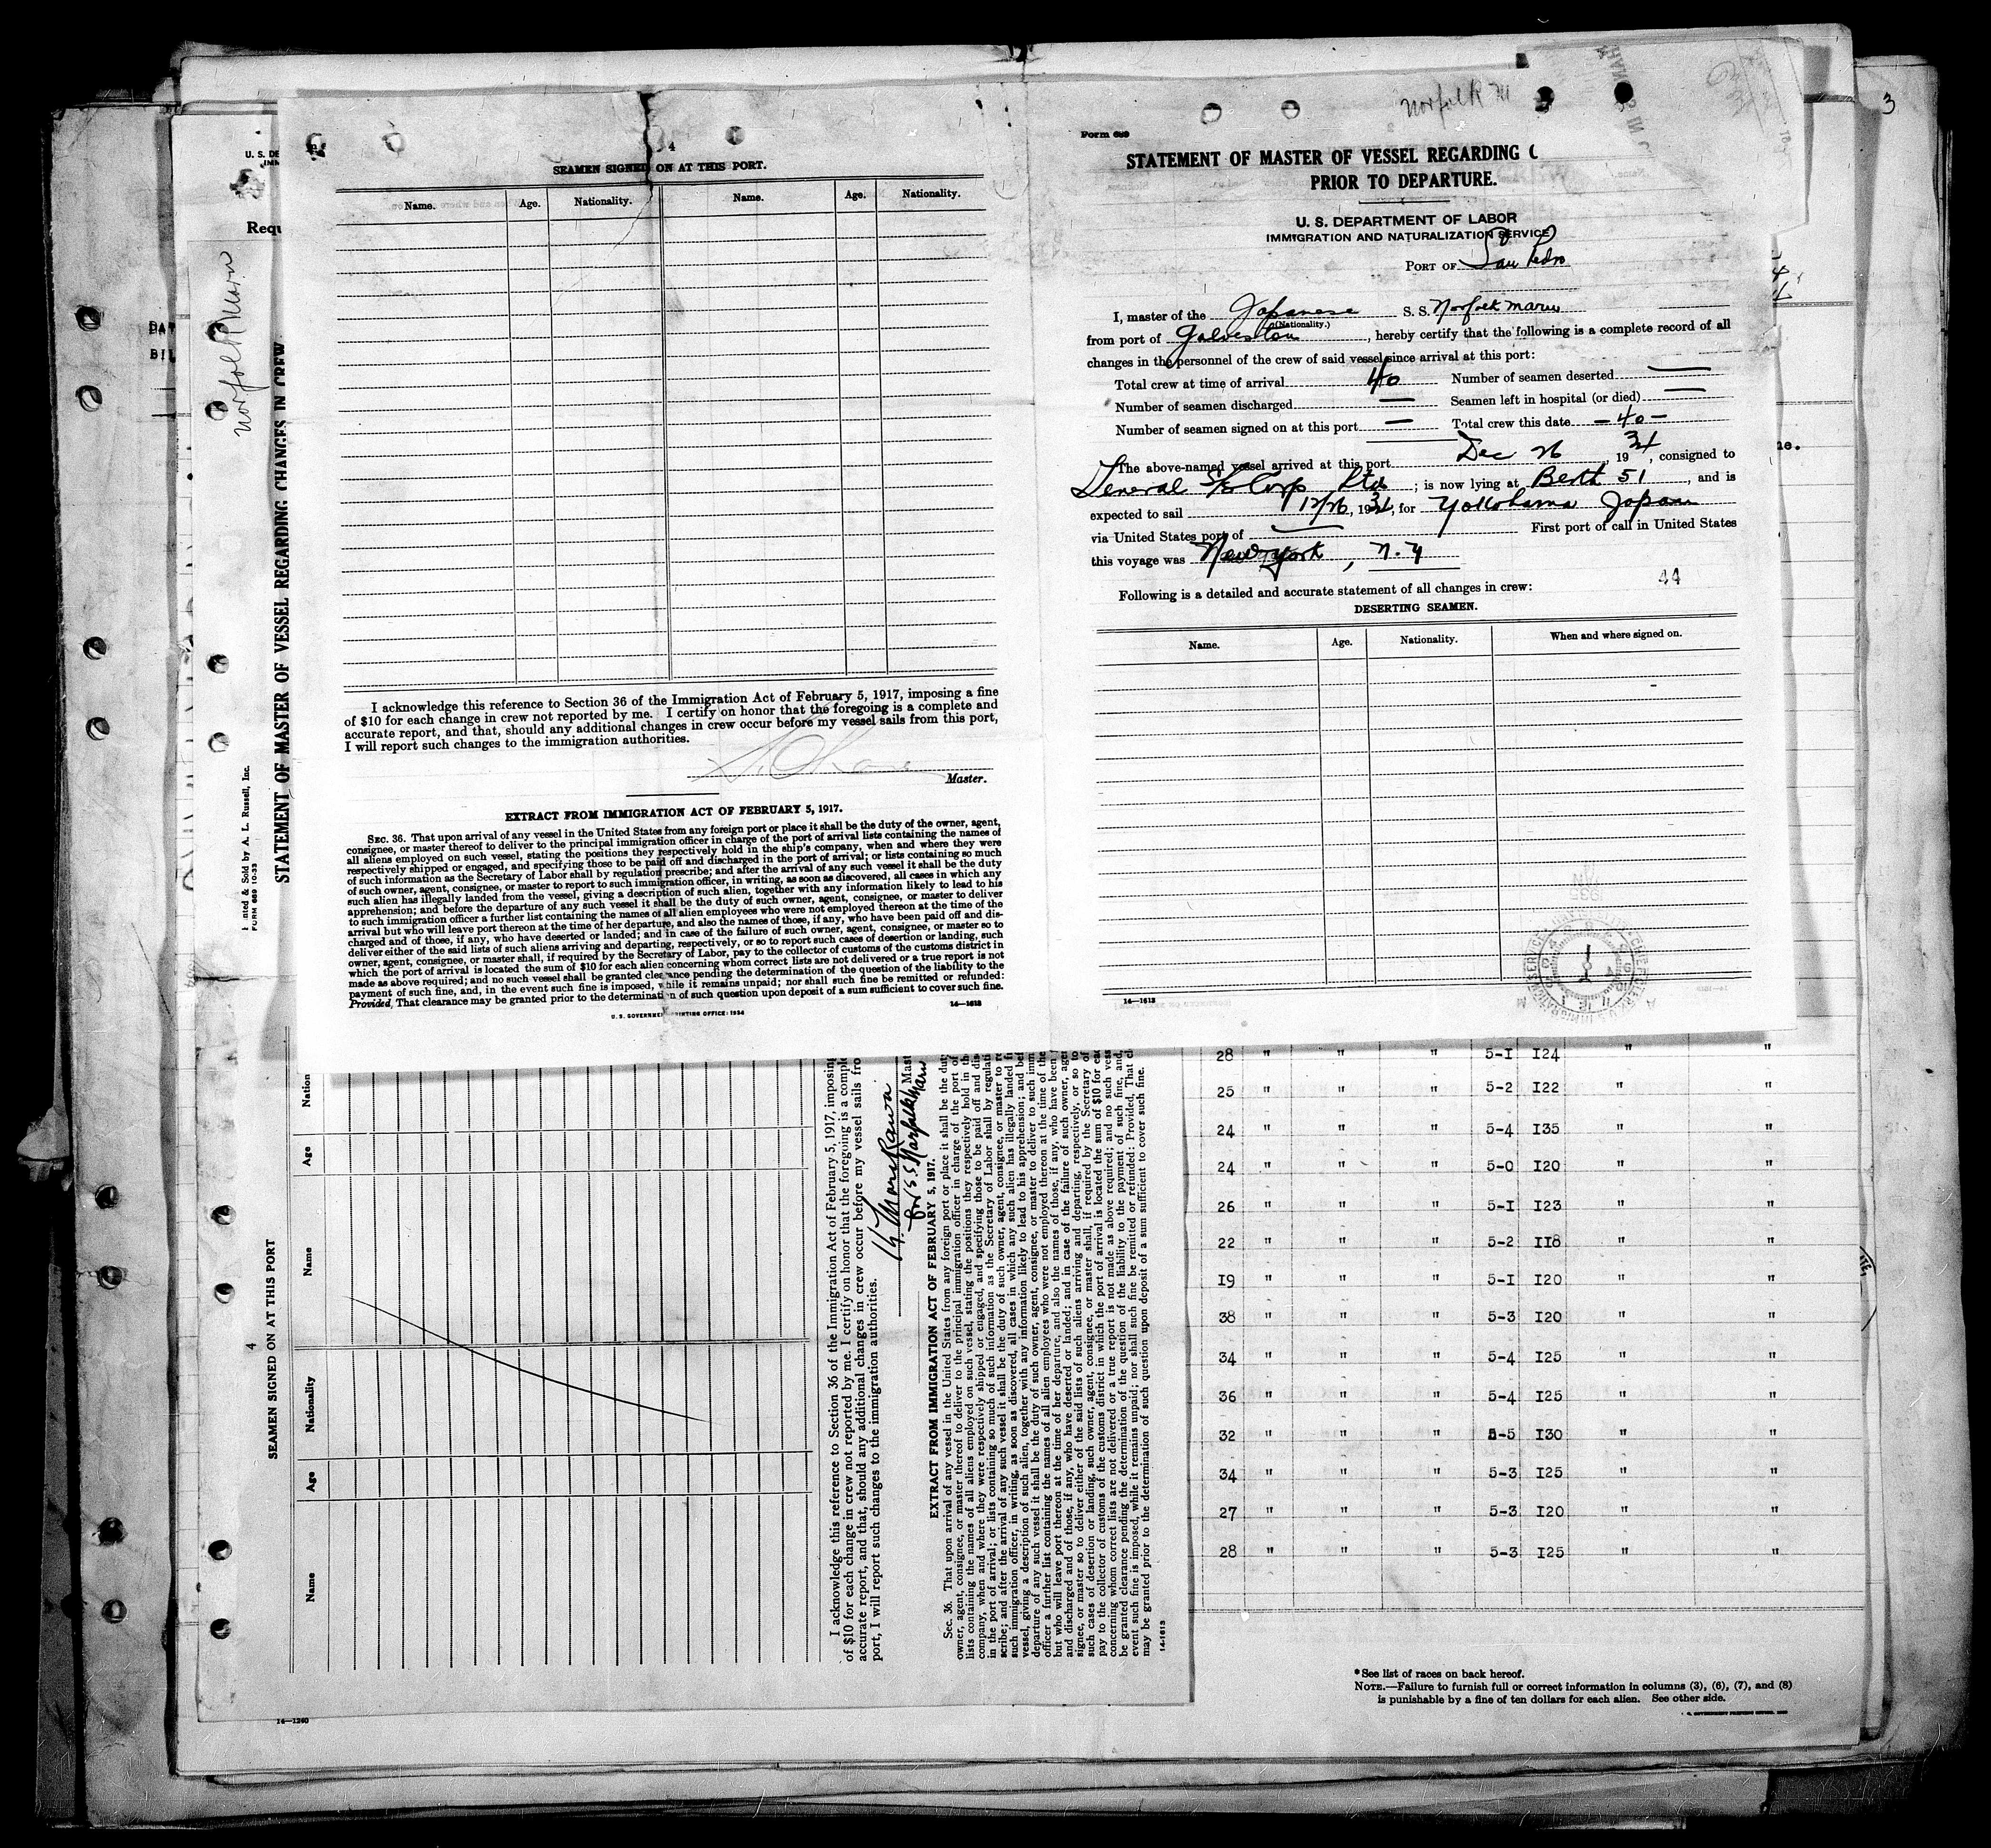 3
Norfolk M
4
SEAMEN SIGNED ON AT THIS PORT.
Name. Age. Nationality. Name. Age. Nationality.
I acknowledge this reference to Section 36 of the Immigration Act of February 5, 1917, imposing a fine
of $10 for each change in crew not reported by me. I certify on honor that the foregoing is a complete and
accurate report, and that, should any additional changes in crew occur before my vessel sails from this port,
I will report such changes to the immigration authorities.
Master.
EXTRACT FROM IMMIGRATION ACT OF FEBRUARY 5, 1917.
SEC. 36. That upon arrival of any vessel in the United States from any foreign port or place it shall be the duty of the owner, agent,
consignee, or master thereof to deliver to the principal immigration officer in charge of the port of arrival lists containing the names of
all aliens employed on such vessel, stating the positions they respectively hold in the ship's company, when and where they were
respectively shipped or engaged, and specifying those to be paid off and discharged in the port of arrival; or lists containing so much
of such information as the Secretary of Labor shall by regulation prescribe; and after the arrival of any such vessel it shall be the duty
of such owner, agent, consignee, or master to report to such immigration officer, in writing, as soon as discovered, all cases in which any
such alien has illegally landed from the vessel, giving a description of such alien, together with any information likely to lead to his
apprehension; and before the departure of any such vessel it shall be the duty of such owner, agent, consignee, or master to deliver
to such immigration officer a further list containing the names of all alien employees who were not employed thereon at the time of the
arrival but who will leave port thereon at the time of her departure, and also the names of those, if any, who have been paid off and dis-
charged and of those, if any, who have deserted or landed; and in case of the failure of such owner, agent, consignee, or master so to
deliver either of the said lists of such aliens arriving and departing, respectively, or so to report such cases of desertion or landing, such
owner, agent, consignee, or master shall, if required by the Secretary of Labor, pay to the collector of customs of the customs district in
which the port of arrival is located the sum of $10 for each alien concerning whom correct lists are not delivered or a true report is not
made as above required; and no such vessel shall be granted clearance pending the determination of the question of the liability to the
payment of such fine, and, in the event such fine is imposed, while it remains unpaid; nor shall such fine be remitted or refunded:
Provided, That clearance may be granted prior to the determination of such question upon deposit of a sum sufficient to cover such fine.
14—1613
U. S. GOVERNMENT PRINTING OFFICE: 1934
Form 689
STATEMENT OF MASTER OF VESSEL REGARDING C
PRIOR TO DEPARTURE.
U. S. DEPARTMENT OF LABOR
IMMIGRATION AND NATURALIZATION SERVICE
PORT OF San Pedro
I, master of the Japanese S. S. Norfolk maru
(Nationality.)
from port of Galveston, hereby certify that the following is a complete record of all
changes in the personnel of the crew of said vessel since arrival at this port:
Total crew at time of arrival 40 Number of seamen deserted —
Number of seamen discharged — Seamen left in hospital (or died) —
Number of seamen signed on at this port — Total crew this date —40—
The above-named vessel arrived at this port Dec 26, 1934, consigned to
General S/S Corp Ltd; is now lying at Berth 51, and is
expected to sail 12/26, 1934, for Yokohama Japan
via United States port of — First port of call in United States
this voyage was New york, N.Y
44
Following is a detailed and accurate statement of all changes in crew:
DESERTING SEAMEN.
Name. Age. Nationality. When and where signed on.
14—1613
U. S. DE
Requ
Norfolk Maru
DAT
BIL
STATEMENT OF MASTER OF VESSEL REGARDING CHANGES IN CREW
nted & Sold by A. L. Russell, Inc.
FORM 689 10-33
4
SEAMEN SIGNED ON AT THIS PORT
Name Age Nationality Name Age Nation
I acknowledge this reference to Section 36 of the Immigration Act of February 5, 1917, imposing
of $10 for each change in crew not reported by me. I certify on honor that the foregoing is a comple
accurate report, and that, should any additional changes in crew occur before my vessel sails fro
port, I will report such changes to the immigration authorities.
Mast
S.S. Norfolk Maru
EXTRACT FROM IMMIGRATION ACT OF FEBRUARY 5, 1917.
Sec. 36. That upon arrival of any vessel in the United States from any foreign port or place it shall be the duty
owner, agent, consignee, or master thereof to deliver to the principal immigration officer in charge of the port of
lists containing the names of all aliens employed on such vessel, stating the positions they respectively hold in the
company, when and where they were respectively shipped or engaged, and specifying those to be paid off and dis
in the port of arrival; or lists containing so much of such information as the Secretary of Labor shall by regulati
scribe; and after the arrival of any such vessel it shall be the duty of such owner, agent, consignee, or master to re
such immigration officer, in writing, as soon as discovered, all cases in which any such alien has illegally landed f
vessel, giving a description of such alien, together with any information likely to lead to his apprehension; and bef
departure of any such vessel it shall be the duty of such owner, agent, consignee, or master to deliver to such imm
officer a further list containing the names of all alien employees who were not employed thereon at the time of the
but who will leave port thereon at the time of her departure, and also the names of those, if any, who have been
and discharged and of those, if any, who have deserted or landed; and in case of the failure of such owner, age
signee, or master so to deliver either of the said lists of such aliens arriving and departing, respectively, or so to
such cases of desertion or landing, such owner, agent, consignee, or master shall, if required by the Secretary of
pay to the collector of customs of the customs district in which the port of arrival is located the sum of $10 for eac
concerning whom correct lists are not delivered or a true report is not made as above required; and no such vess
be granted clearance pending the determination of the question of the liability to the payment of such fine, and,
event such fine is imposed, while it remains unpaid; nor shall such fine be remitted or refunded: Provided, That cl
may be granted prior to the determination of such question upon deposit of a sum sufficient to cover such fine.
14-1613
28 " " " 5-I I24 " "
25 " " " 5-2 I22 " "
24 " " " 5-4 I35 " "
24 " " " 5-0 I20 " "
26 " " " 5-I I23 " "
22 " " " 5-2 II8 " "
I9 " " " 5-I I20 " "
38 " " " 5-3 I20 " "
34 " " " 5-4 I25 " "
36 " " " 5-4 I25 " "
32 " " " 5-5 I30 " "
34 " " " 5-3 I25 " "
27 " " " 5-3 I20 " "
28 " " " 5-3 I25 " "
*See list of races on back hereof.
NOTE.—Failure to furnish full or correct information in columns (3), (6), (7), and (8)
is punishable by a fine of ten dollars for each alien. See other side.
14—1240